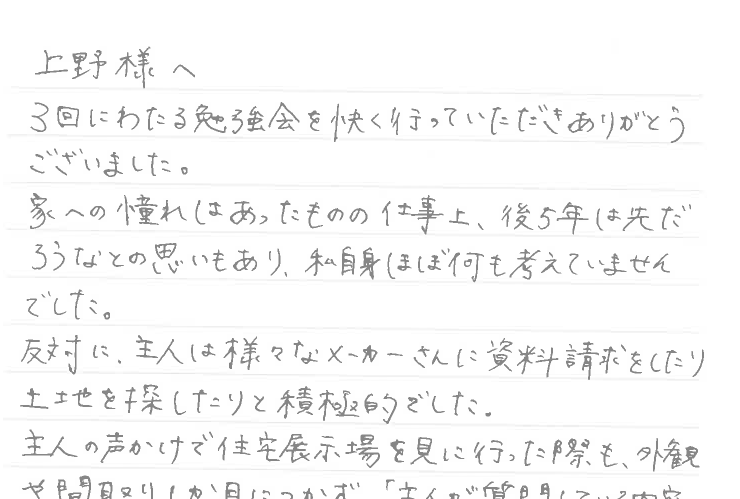 上野様へ
3回にわたる勉強会を快く行っていただきありがとう
ございました。
家への憧れはあったものの仕事上、後5年は先だ
ろうなとの思いもあり、私自身ほぼ何も考えていません
でした。
反対に、主人は様々なメーカーさんに資料請求をしたり
土地を探したりと積極的でした。
主人の声かけで住宅展示場を見に行った際も、外観
や間取りしか目につかず、「主人が質問している内容